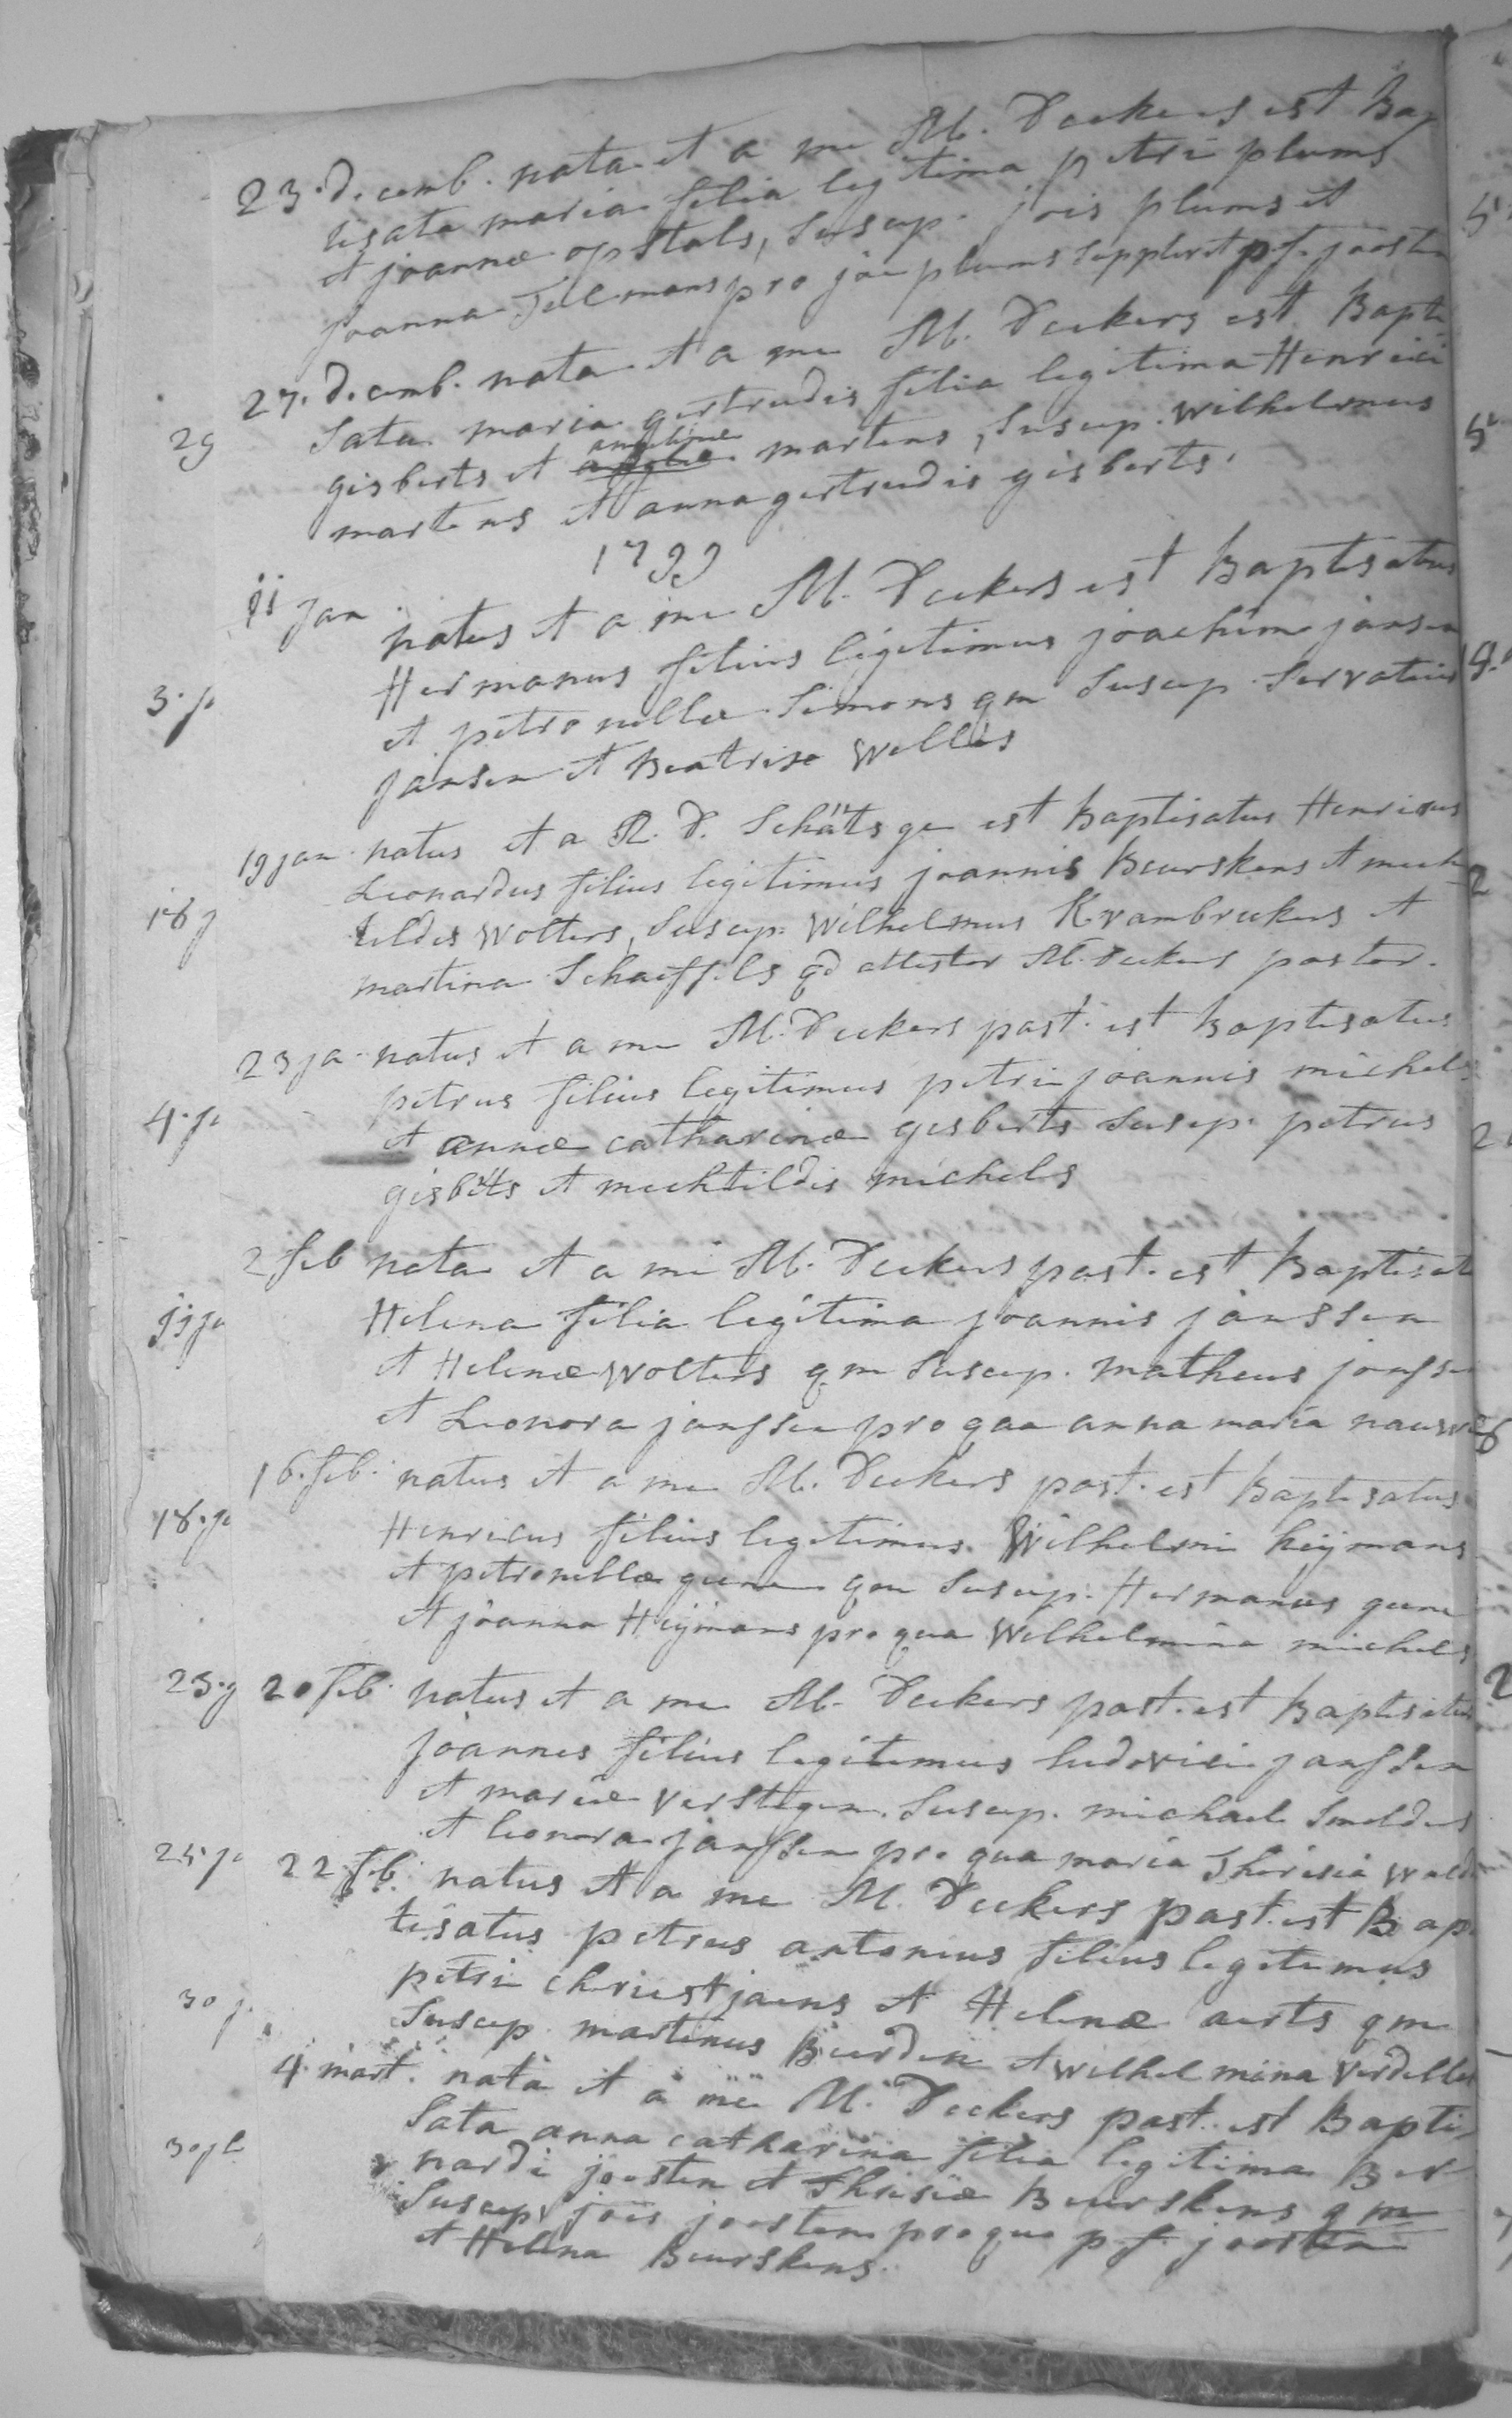 23. decemb. nata et a me M. Deckers est Bap
tisata maria filia legitima petri plums
et joannæ opstals, Suscep. jois plums et
joanna Tilmans pro joe plums supplevit p. f. joosten
27. decemb. nata et a me M. Deckers est Bapti
Sata maria gertrudis filia legitima Henrici
gisberts et angelinæ martens, Suscep. Wilhelmus
martens et anna gertrudis gisberts.
1799
11 jan natus et a me M. Deckers est Baptisatus
Hermanus filius legitimus joachim jansen
et petronellæ Simons qm Suscep. Servatius
jansen et Beatrix Wellis
19 jan natus et a R. D. Schätsge est Baptisatus Henricus
Leonardus filius legitimus joannis Beurskens et mech
tildis Wolters, Suscep. Wilhelmus Krambreckers et
martina Schaeffels qd attestor M. Deckers pastor.
23 ja. natus et a me M. Deckers past. est Baptisatus
petrus filius legitimus petri joannis michels
et annæ catharinæ gisberts Suscep. petrus
gisbets et mechtildis michels
2 feb nata et a me M. Deckers past. est Baptisat
Helena filia legitima joannis janssen
et Helenæ Wolters qm Suscep. matheus janssen
et Leonora janssen pro qua anna maria
16. feb. natus et a me M. Deckers past. est Baptisatus
Henricus filius legitimus Wilhelmi heijmans
et petronellæ geene qm Suscep. Hermanus geene
et joanna Heijmans pro qua Wilhelmina michels
20 feb natus et a me M. Deckers past. est Baptisatus
joannes filius legitimus ludovici janssen
et mariæ Verstegen. Suscep. michael Smolders
et leonora janssen pro qua maria Theresia
22 feb. natus et a me M. Deckers past. est Bap
tisatus petrus antonius filius legitimus
petri christjaens et Helenæ aerts qm
Suscep. martinus Beurden et Wilhelmina Verdellen
4 mart. nata et a me M. Deckers past. est Bapti
Sata anna catharina filia legitima Ber
nardi joosten et Thresiæ Beurskens qm
Suscep. jois joosten pro quo p. f. joosten
et Helena Beurskens.
29
3. ja
18 j
4. ja
11 ja
18. ja
23. j
25 ja
30 j.
30 ja